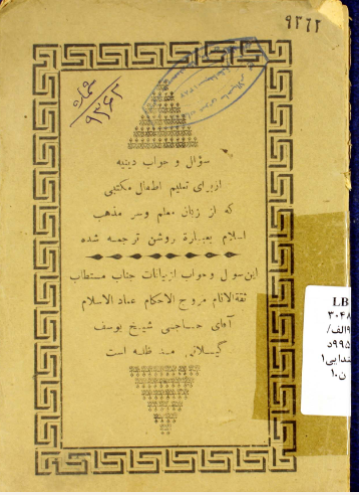 ٩٣٦٢
شماره
٩٣٦٢
سؤال و جواب دینیه
از برای تعلیم اطفال مکتبی
که از زبان معلم و سر مذهب
اسلام بعبارة روشن ترجمه شده
این سوال و جواب از بیانات جناب مستطاب
ثقة الانام مروج الاحکام عماد الاسلام
آقای حاجی شیخ یوسف
گیلانی مد ظله است
LB
٣٠٤٨
الف/
٩٩٥د
ابتدایی١
ن١٠